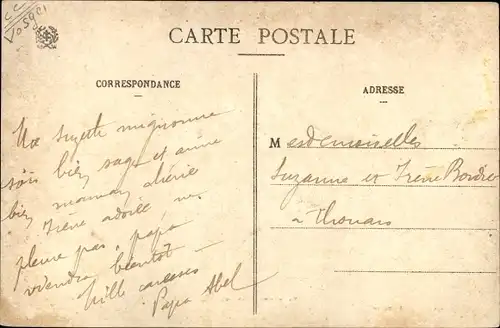 CARTE POSTALE
CORRESPONDANCE
Ma Suzette mignonne
sois bien sage et aime
bien maman chérie
Irène adorée, ne
pleure pas, papa
reviendra bientôt —
Mille caresses
Papa Abel
ADRESSE
Mesdemoiselles
Suzanne et Irène Bordier
à Thouars